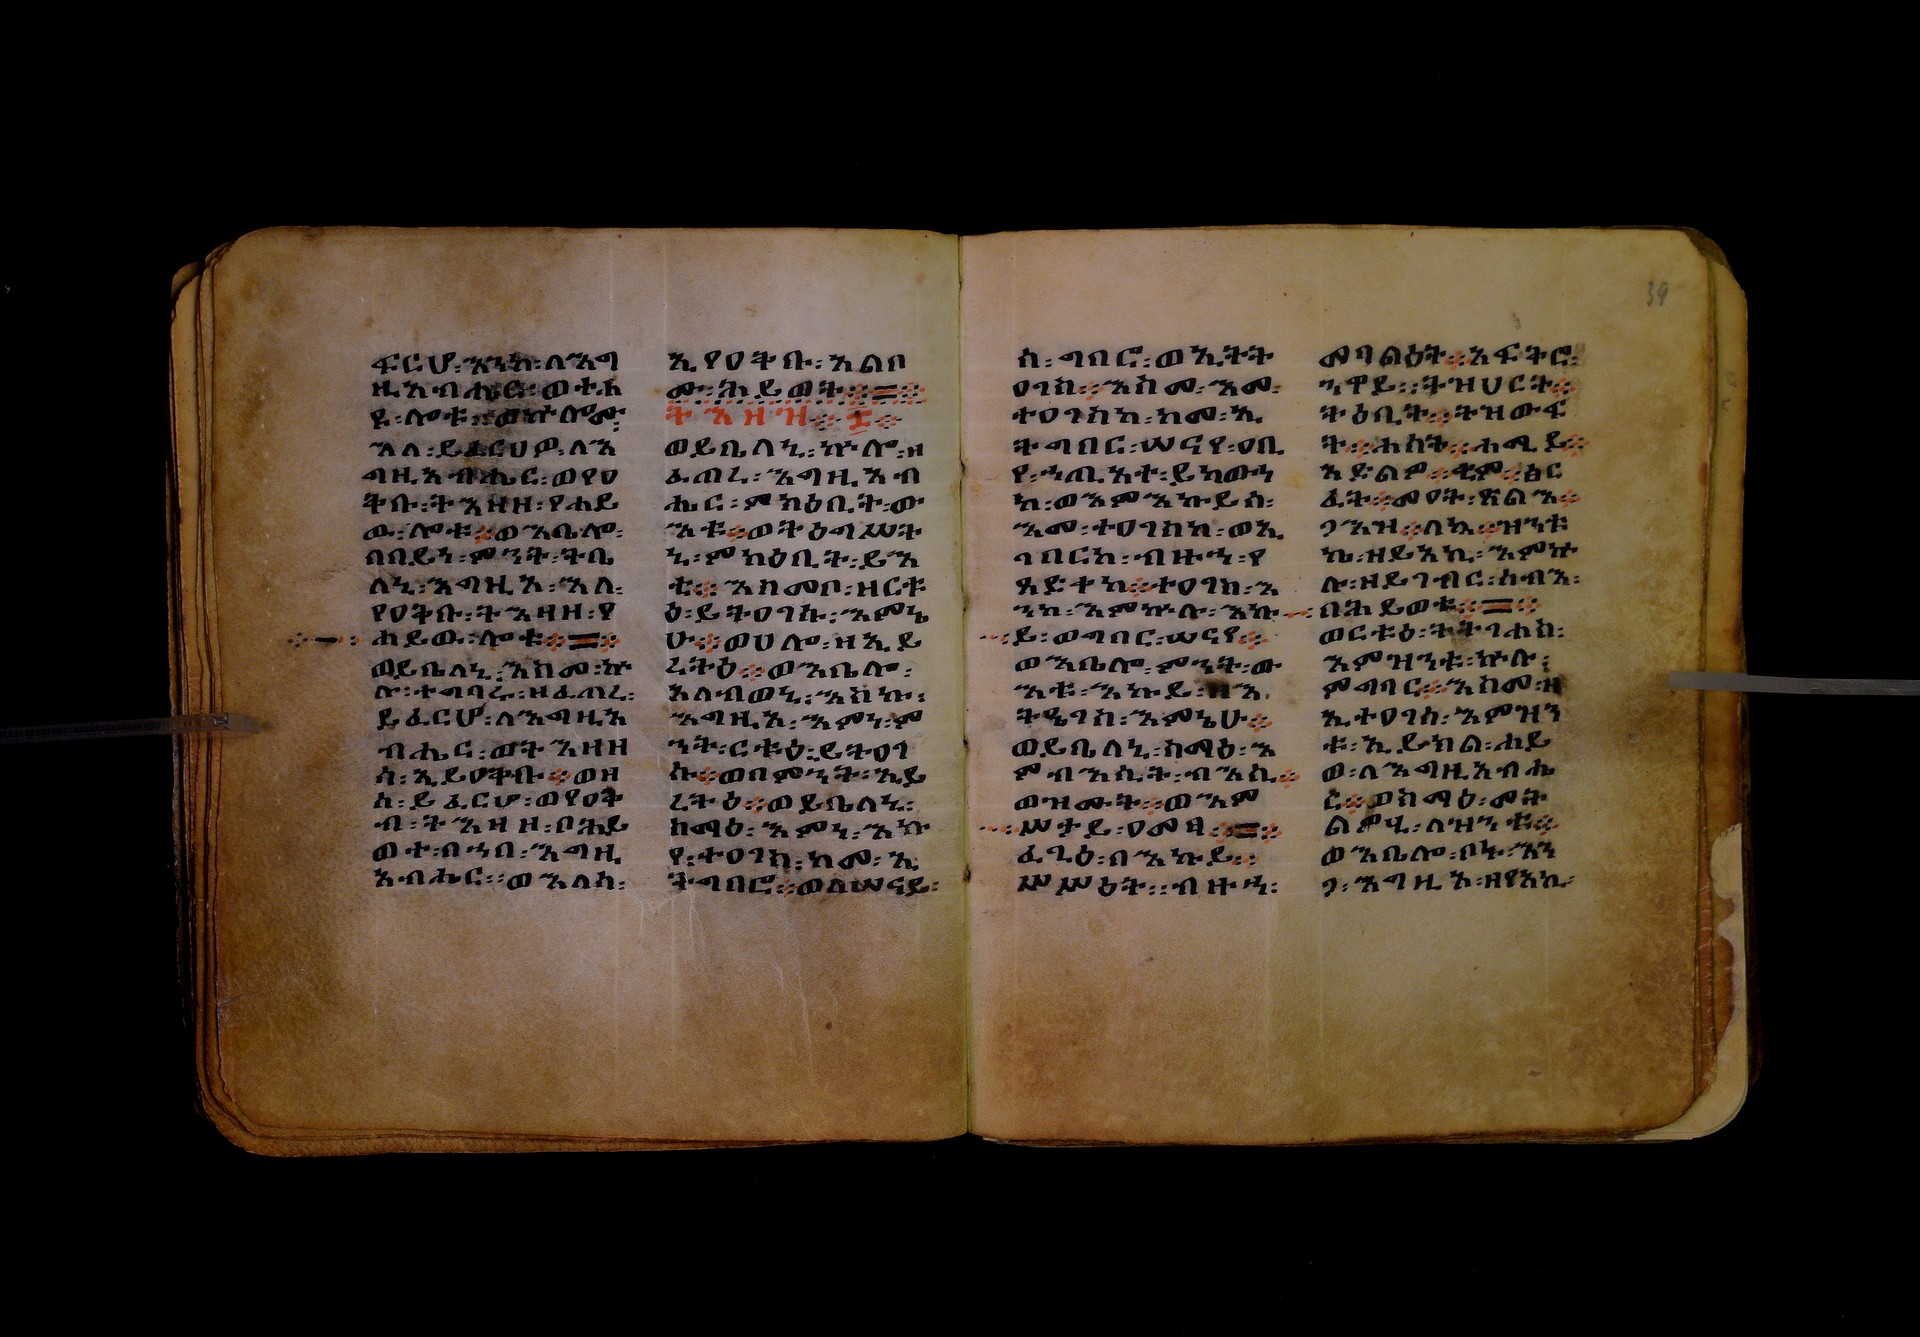 ፍርሆ፡እንከ፡ለእግ
ዚአብሔር፡ወተሐ
ዩ፡ሎቱ፡፡ወኵሎሙ፡
እለ፡ይፈርህዎ፡ለእ
ግዚአብሔር፡ወየዐ
ቅቡ፡ትእዛዘ፡የሐይ
ዉ፡ሎቱ፡፡ወእቤሎ፡
በበይነ፡ምንት፡ትቤ
ለኒ፡እግዚኦ፡እለ፡
የዐቅቡ፡ትእዛዘ፡የ
ሐይዉ፡ሎቱ፡፡
ወይቤለኒ፡እስመ፡ኵ
ሉ፡ተግባረ፡ዘፈጠረ፡
ይፈርሆ፡ለእግዚአ
ብሔር፡ወትእዛዘ
ሰ፡ኢይዐቅቡ፡፡ወዘ
ሰ፡ይፈርሆ፡ወየዐቅ
ብ፡ትእዛዘ፡ቦሕይ
ወተ፡በኀበ፡እግዚ
አብሔር፡፡ወእለሰ፡
ኢየዐቅቡ፡አልቦ
ሙ፡ሕይወት፡፡
ትእዛዝ፡፡፰፡፡
ወይቤለኒ፡ኵሎ፡ዘ
ፈጠረ፡እግዚአብ
ሔር፡ምክዕቢት፡ው
እቱ፡፡ወትዕግሥት
ኒ፡ምክዕቢት፡ይእ
ቲ፡፡እስመቦ፡ዘርቱ
ዕ፡ይትዐገሱ፡እምኔ
ሁ፡፡ወሀሎ፡ዘኢይ
ረትዕ፡፡ወእቤሎ፡
አለብወኒ፡እስኩ፡
እግዚኦ፡እምነ፡ም
ንት፡ርቱዕ፡ይትዐገ
ሱ፡፡ወበምንት፡ኢይ
ረትዕ፡፡ወይቤለኒ፡
ስማዕ፡እምነ፡እኩ
የ፡ተዐገስ፡ከመ፡ኢ
ትግበሮ፡፡ወለሠናይ፡
ሰ፡ግበሮ፡ወኢትት
ዐገስ፡፡እስመ፡እመ፡
ተዐገስከ፡ከመ፡ኢ
ትግበር፡ሠናየ፡ዐቢ
የ፡ኀጢአተ፡ይከውን
ከ፡ወእምእኩይሰ፡
እመ፡ተዐገስከ፡ወኢ
ገበርከ፡ብዙኀ፡የ
ጸድቀከ፡፡ተዐገስ፡እ
ንከ፡እምኵሉ፡እኩ
ይ፡ወግበር፡ሠናየ፡፡
ወእቤሎ፡ምንት፡ው
እቱ፡እኩይ፡ዘእ
ትዔገስ፡እምኔሁ፡፡
ወይቤለኒ፡ስማዕ፡እ
ምብእሲት፡ብእሲ፡፡
ወዝሙት፡፡ወእም
ሥቴይ፡ዐመፃ፡፡
ፈጊዕ፡በእኩይ፡፡
ሥሥዕት፡፡ብዙኀ፡
መባልዕት፡፡አፍቅሮ፡
ንዋይ፡፡ትዝህርት፡፡
ትዕቢት፡፡ትዝውፍ
ት፡፡ሐሰት፡፡ሐሚይ፡፡
አድልዎ፡፡ቂም፡፡ፅር
ፈት፡፡መዐት፡፡ጽልእ፡፡
ዝንቱ
ኬ፡ዘይአኪ፡እምኵ
ሉ፡ዘይገብር፡ሰብእ፡
በሕይወቱ፡፡
ወርቱዕ፡ትትገሐስ፡
እምዝንቱ፡ኵሉ፡
ምግባር፡፡እስመ፡ዘ
ኢተዐገሰ፡እምዝን
ቱ፡ኢይክል፡ሐይ
ወ፡ለእግዚአብሔ
ር፡፡ወስማዕ፡
ለዝንቱ፡፡
ወእቤሎ፡ቦኑ፡እን
ጋ፡እግዚኦ፡ዘየአኪ፡
39